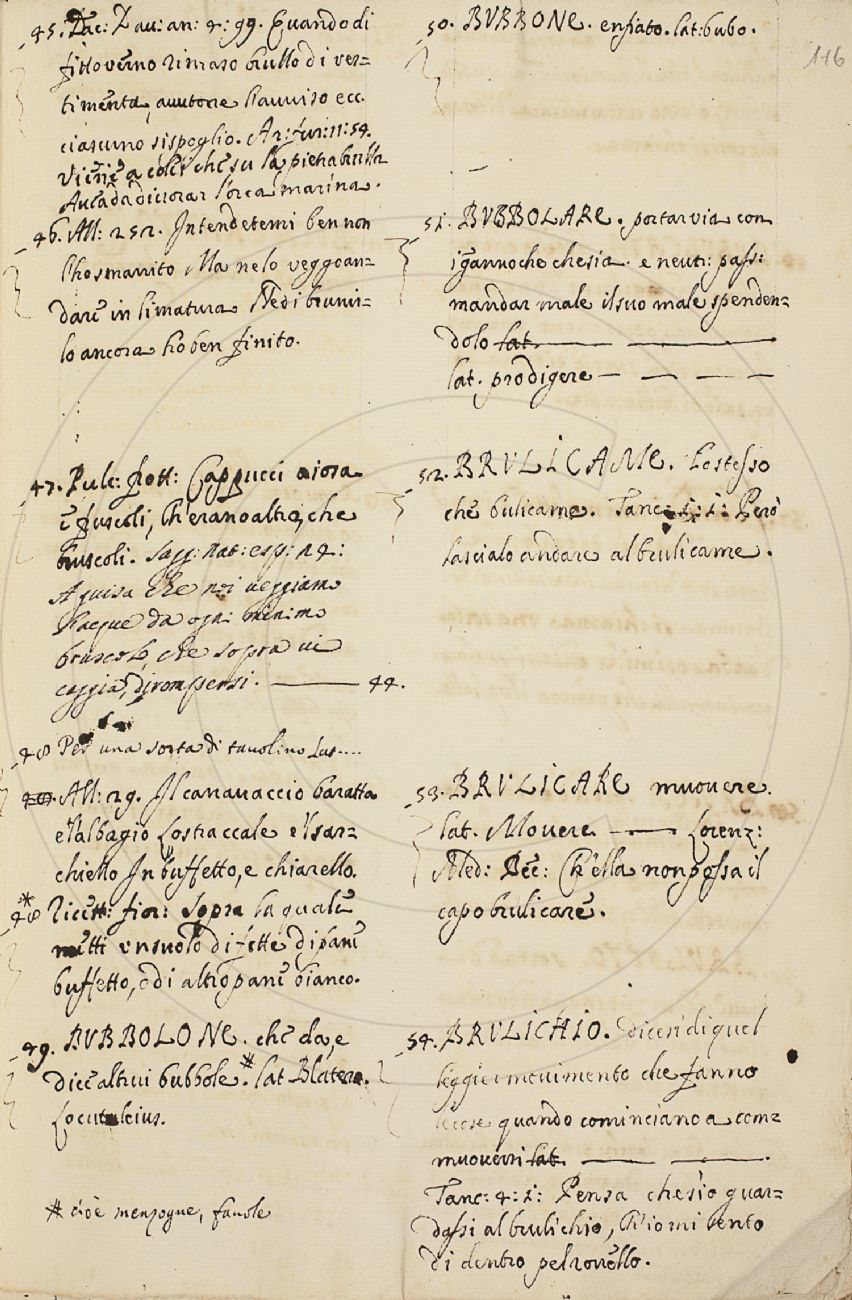 45. Tac: Dav: an: 4: 99. Quando di
fitto verno rimaso brullo di ves=
timenta, avutone l'avviso ecc.
ciascuno si spoglio. Ar: fur: 11: 59.
a colei che su la pietra brulla
divorar l'orca marina.
46. All: 252. Intendetemi ben non
l'ho smarrito Ma ne lo veggo an=
dare in limatura Ne di bruni=
lo ancora ho ben finito.
47. Pulc: frott: Cappucci aiosa
e fuscoli, Ch'erano altro, che
bruscoli. Sagg: nat: esp: 24:
A guisa che noi veggiamo
l'acque da ogni minimo
bruscolo, che sopra vi
caggia, dirompersi. ——— 44.
48 Per una sorta di tavolino Lat....
All: 29. Il canavaccio baratta
e l'albagio Lo straccale e'l sar=
chiello In buffetto, e chiarello.
48 * ricett: fior: sopra la quale
metti un suolo di fette di pane
buffetto, o di altro pane bianco.
49. BVBBOLONE. che da, e
dice altrui bubbole.* lat Blatero.
Locutuleius.
* cioè menzogne, favole
116
50. BVBBONE. enfiato. lat: bubo.
51. BVBBOLARE. portar via con
igannoche chesia. e neutr: pass:
mandar male il suo male spenden=
dolo lat. ——— ———
lat. prodigere — — — —
52. BRVLICAME. Lo stesso
che bulicame. Tanc: 1: 1: Però
lascialo andare al brulicame.
53. BRVLICARE muovere.
lat. Movere ——— Lorenz:
Med: Bee: Ch'ella non possa il
capo brulicare.
54. BRVLICHIO. Dicesi di quel
leggier movimento che fanno
le cose quando cominciano a com=
muoversi lat. ——— ———
Tanc: 4: 1: Pensa che s'io guar=
dassi al brulichio, Ch'io mi sento
di dentro pel rovello.